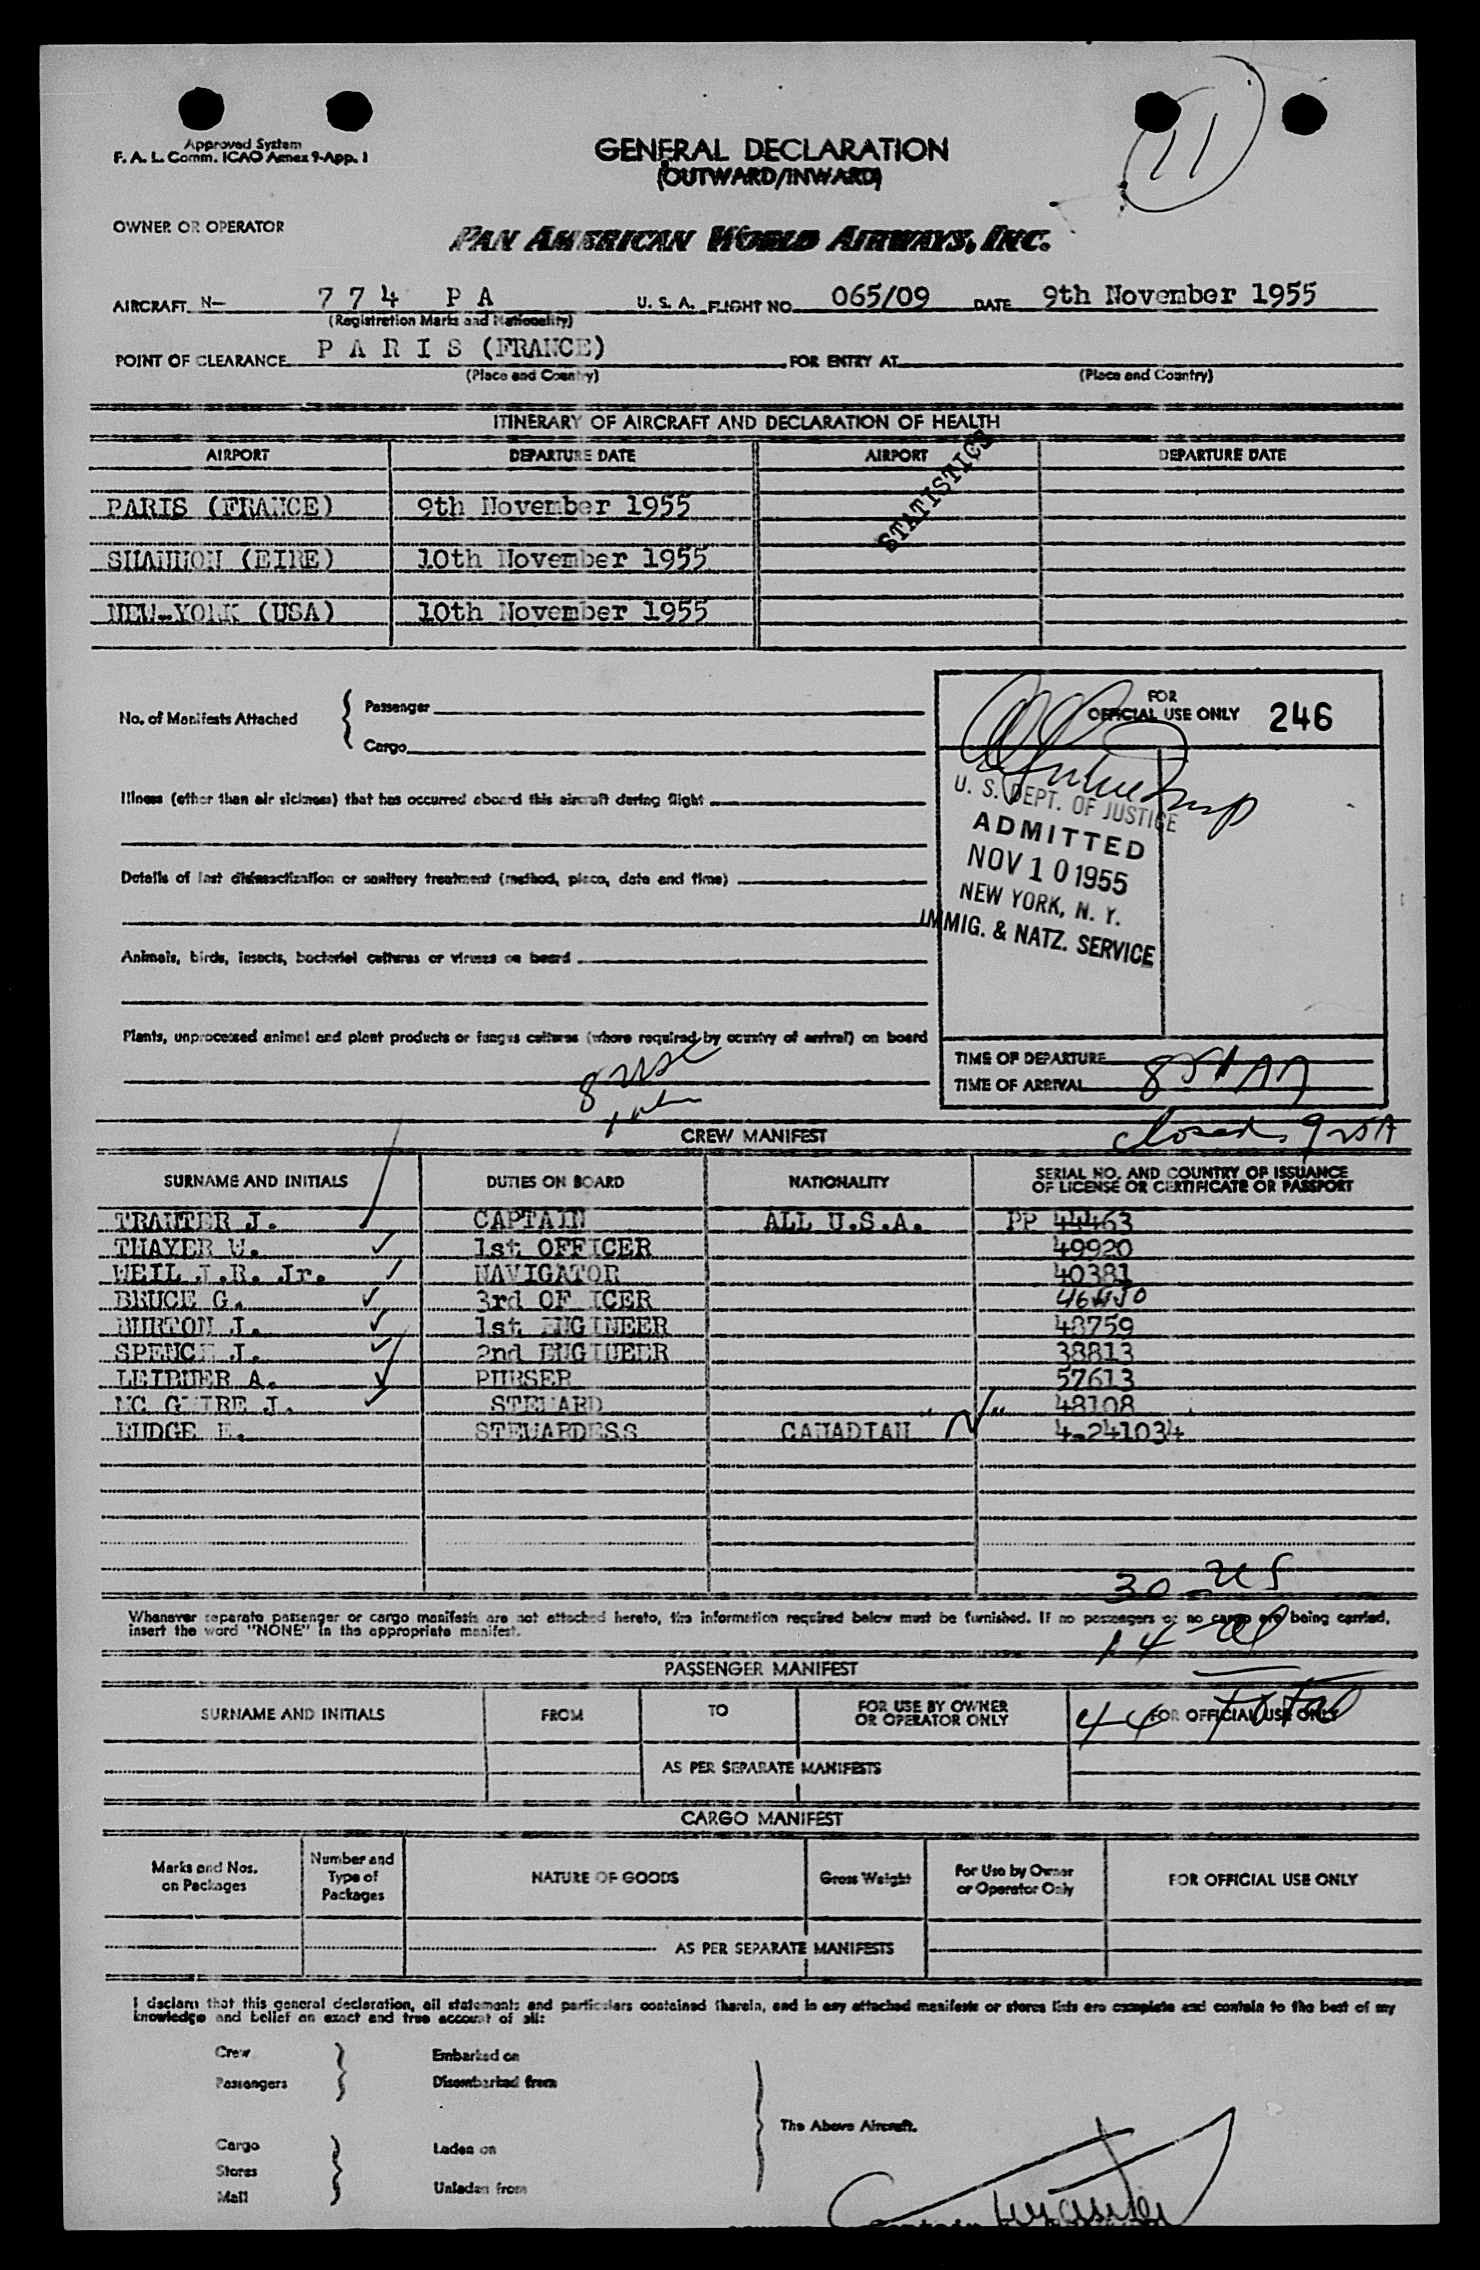 11
Approved System
F. A. L. Comm. ICAO Annex 9-App. 1
GENERAL DECLARATION
(OUTWARD/INWARD)
OWNER OR OPERATOR
PAN AMERICAN WORLD AIRWAYS, INC.
AIRCRAFT N- 774 PA U. S. A. FLIGHT NO. 065/09 DATE 9th November 1955
(Registration Marks and Nationality)
POINT OF CLEARANCE P A R I S (FRANCE) FOR ENTRY AT
(Place and Country) (Place and Country)
ITINERARY OF AIRCRAFT AND DECLARATION OF HEALTH
AIRPORT DEPARTURE DATE AIRPORT DEPARTURE DATE
STATISTICS
PARIS (FRANCE) 9th November 1955
SHANNON (EIRE) 10th November 1955
NEW-YORK (USA) 10th November 1955
No. of Manifests Attached { Passenger
Cargo
FOR
OFFICIAL USE ONLY 246
Illness (other than air sickness) that has occurred aboard this aircraft during flight
U. S. DEPT. OF JUSTICE
ADMITTED
NOV 10 1955
NEW YORK, N. Y.
IMMIG. & NATZ. SERVICE
Details of last disinsectization or sanitary treatment (method, place, date and time)
Animals, birds, insects, bacterial cultures or viruses on board
Plants, unprocessed animal and plant products or fungus cultures (where required by country of arrival) on board
TIME OF DEPARTURE
TIME OF ARRIVAL
8 usc
CREW MANIFEST
closed
SURNAME AND INITIALS DUTIES ON BOARD NATIONALITY SERIAL NO. AND COUNTRY OF ISSUANCE
OF LICENSE OR CERTIFICATE OR PASSPORT
TRANTER J. CAPTAIN ALL U.S.A. PP 44463
THAYER W. 1st OFFICER 49920
WEIL J.R. Jr. NAVIGATOR 40381
BRUCE G. 3rd OF ICER
BURTON J. 1st ENGINEER 48759
SPENCE J. 2nd ENGINEER 38813
LEIBNER A. PURSER 57613
MC GUIRE J. STEWARD 48108
RUDGE E. STEWARDESS CANADIAN 4-241034
30 - us
Whenever separate passenger or cargo manifests are not attached hereto, the information required below must be furnished. If no passengers or no cargo are being carried,
insert the word "NONE" in the appropriate manifest.
14
PASSENGER MANIFEST
SURNAME AND INITIALS FROM TO FOR USE BY OWNER
OR OPERATOR ONLY FOR OFFICIAL USE ONLY
44 Total
AS PER SEPARATE MANIFESTS
CARGO MANIFEST
Marks and Nos.
on Packages Number and
Type of
Packages NATURE OF GOODS Gross Weight For Use by Owner
or Operator Only FOR OFFICIAL USE ONLY
AS PER SEPARATE MANIFESTS
I declare that this general declaration, all statements and particulars contained therein, and in any attached manifests or stores lists are complete and contain to the best of my
knowledge and belief an exact and true account of all:
Crew Embarked on
Passengers Disembarked from
The Above Aircraft.
Cargo Laden on
Stores
Mail Unladen from